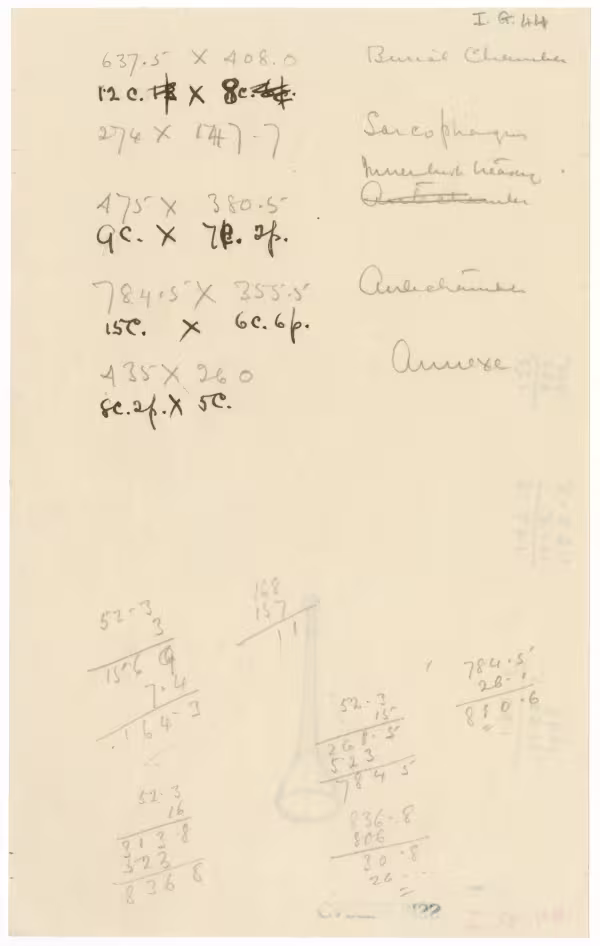 I. G. 44
637.5 X 408.0 Burial Chamber
12 c. X 8c.
274 X 147.7 Sarcophagus
Innermost Treasury
475 X 380.5 Antechamber
9C. X 7C. 2p.
784.5 X 355.5 Antechamber
15C. X 6C. 6p.
435 X 260 Annexe
8C. 2p. X 5C.
168
157
11
52.3
3
156 9
7.4
164.3
784.5
26.1
810.6
52.3
15
261.5
523
784 5
52.3
16
313.8
523
836 8
836.8
806
30.8
26